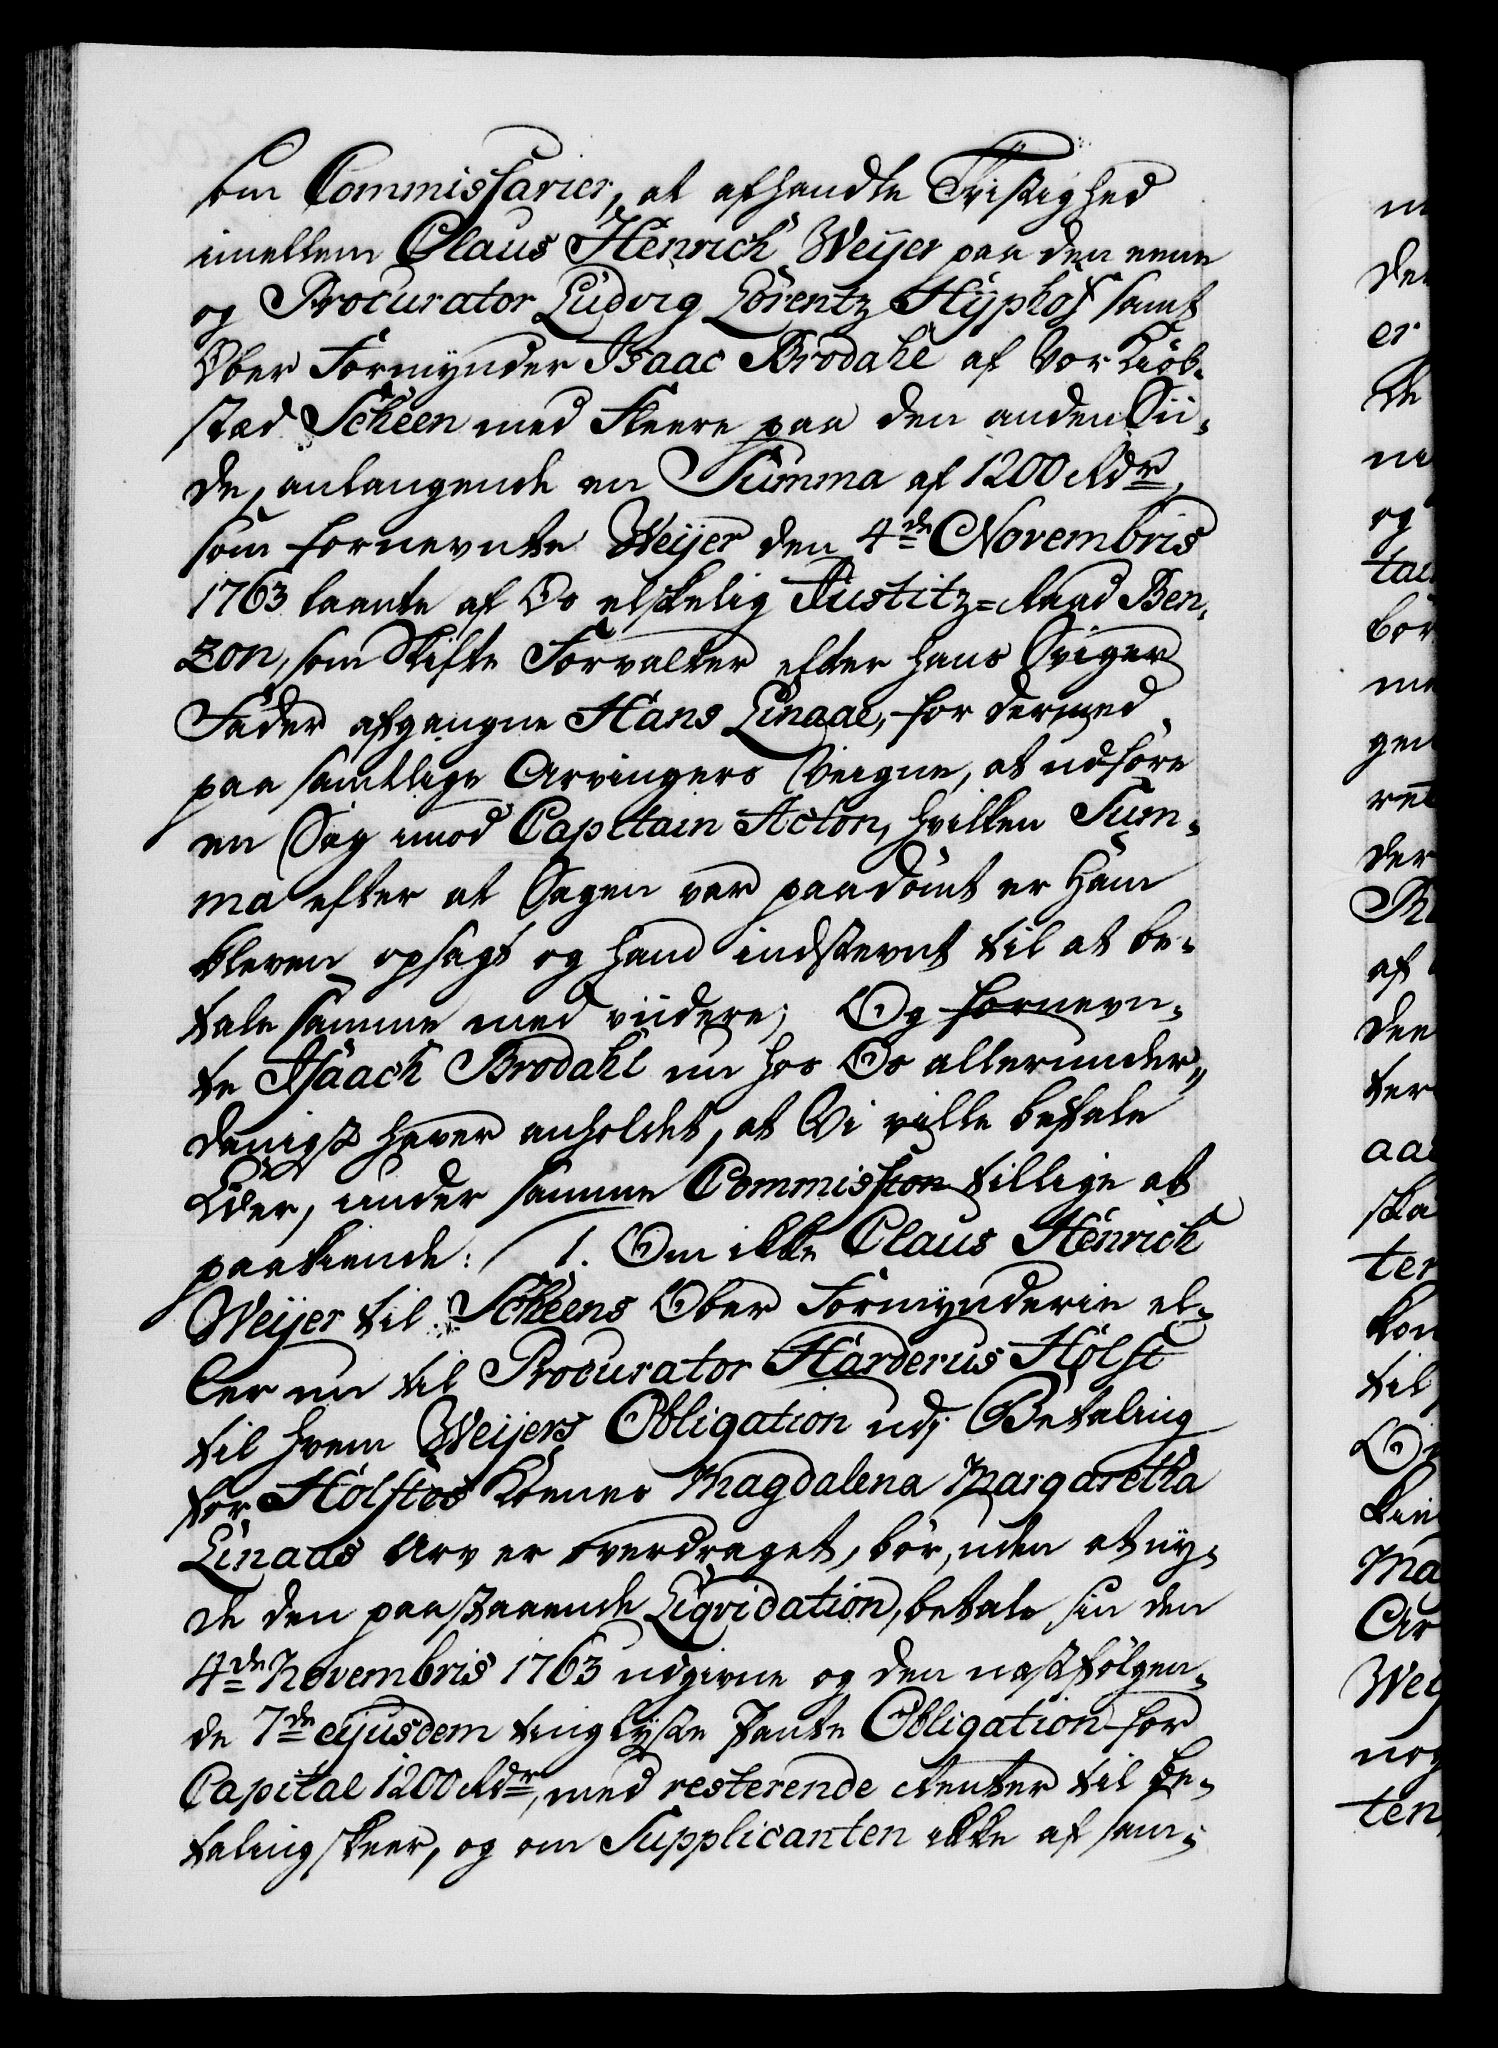 som Commissarier, at afhandle Tvistighed
imellem Claus Henrich Weijer paa den eene
og Procurator Ludvig Lorentz Hyphof samt
Ober Formynder Isaac Brodahl af Vor Kiøb-
stæd Scheen med Fleere paa den anden Sii-
de, anlangende en Summa af 1200 Rdr,
som fornevnte Weijer den 4de Novembris
1763 laante af Os elskelig Justitz-Raad Ben-
zon, som Skifte Forvalter efter hans Sviger
Fader afgangne Hans Linaae, for dermed
paa samtlige Arvingers Veigne, at udføre
en Sag imod Capitain Acton, hvilken Sum-
ma efter at Sagen var paadømt er ham
bleven opsagt og hand indstevnt til at be-
tale samme med viidere; Og fornevn-
te Isaach Brodahl nu hos Os allerunder-
danigst haver anholdet, at Vi ville befale
Eder, under samme Commission tillige at
paakiende: 1. Om ikke Claus Henrich
Weijer til Scheens Ober Formynderie el-
ler nu til Procurator Harderus Holst
til hvem Weijers Obligation udj Betaling
for Holstes Kones Magdalena Margaretha
Linaaes Arv er overdraget, bør, uden at ny-
de den paastaaende Liqvidation, betale sin den
4de Novembris 1763 udgivne og den næstfølgen-
de 7de ejusdem tinglyste Pante Obligation for
Capital 1200 Rdr, med resterende Renter til Be-
taling skeer, og om Supplicanten ikke af sam-